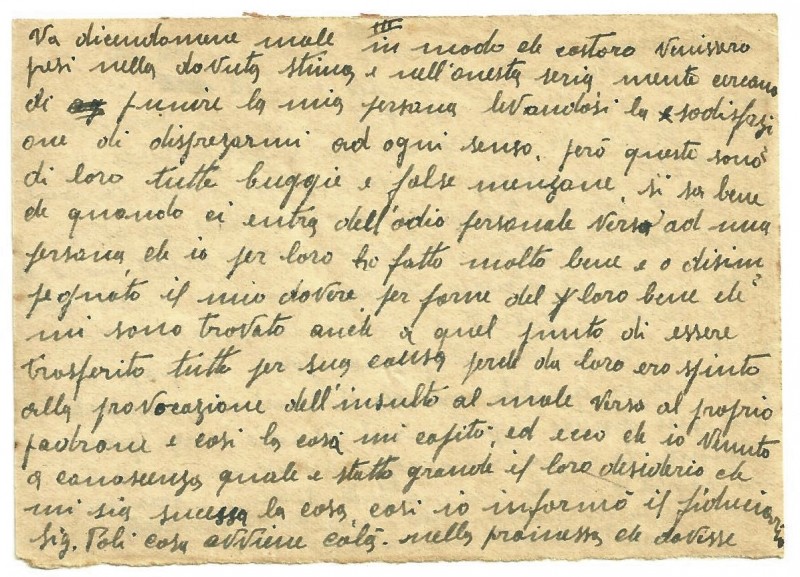 III
Va dicendomene male in modo che costoro venissero
presi nella dovuta stima e nell'onesta seria mente cercano
di punire la mia persona levandosi la sodisfazi
one di disprezarmi ad ogni senso, però queste sono
di loro tutte buggie e false menzone, si sa bene
che quando ci entra dell'odio personale verso ad una
persona che io per loro ho fatto molto bene e o disim
pegnato il mio dovere per farne del loro bene che
mi sono trovato anche a quel punto di essere
trosferito tutto per sua causa perche da loro ero spinto
alla provocazione dell'insulto al male verso al proprio
padrone e così la cosa mi capitò, ed ecco che io venuto
a conoscenza quale e statto grande il loro desiderio che
mi sia sucessa la cosa così io informò il fiduciario
Sig. Poli cosa avviene colà. nella promessa che dovesse